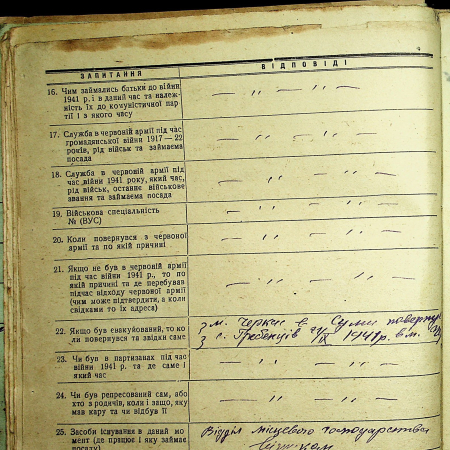 ЗАПИТАННЯ ВІДПОВІДІ
16. Чим займались батьки до війни
1941 р. і в даний час та належ-
ність їх до комуністичної пар
тії і з якого часу
— „ — „ —
17. Служба в червоній армії під час
громадянської війни 1917—22
років, рід військ та займаєма
посада
— „ — „ —
18. Служба в червоній армії під
час війни 1941 року, який час,
рід військ, останнє військове
звання та займаєма посада
— „ — „ —
19. Військова спеціальність
№ (ВУС)
— „ — „ —
20. Коли повернувся з червоної
армії та по якій причині
— „ — „ —
21. Якщо не був в червоній армії
під час війни 1941 р., то по
якій причині та де перебував
підчас відходу червоної армії
(чим може підтвердити, а коли
свідками то їх адреса)
— „ — „ —
22. Якщо був евакуйований, то ко
ли повернувся та звідки саме
з м. Черкас в Суми
з с. 1941 р. в м.
23. Чи був в партизанах під час
війни 1941 р. та де саме і
який час
— „ — „ —
24. Чи був репресований сам, або
хто з родичів, коли і защо, яку
мав кару та чи відбув її
— „ — „ —
25. Засоби існування в даний мо
мент (де працює і яку займає
посаду)
Відділ місцевого господарства